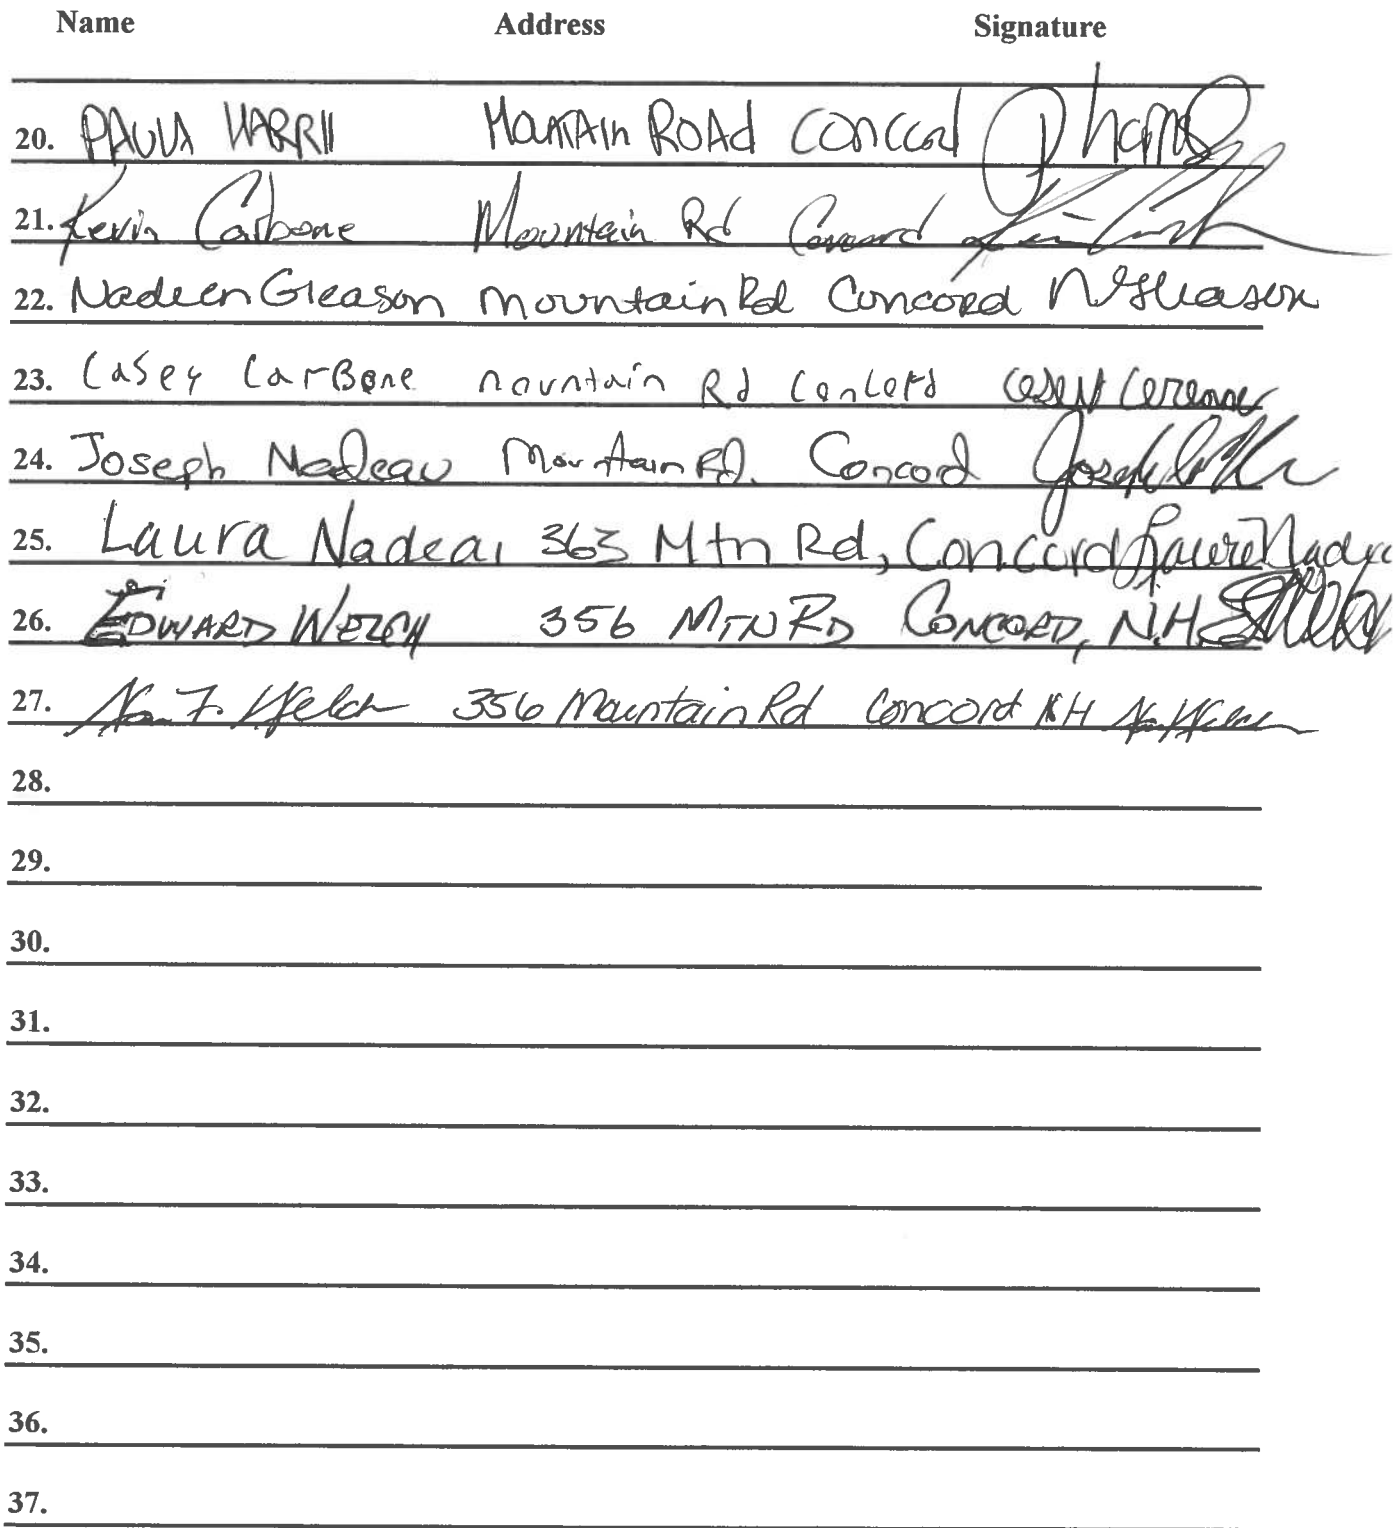 Name Address Signature
20. PAULA HARRII Mountain ROAd Concord P Harris
21. Kevin Carbone Mountain Rd Concord
22. Nadeen Gleason mountain Rd Concord N Gleason
23. Casey CarBone mountain Rd Concord
24. Joseph Nadeau Mountain Rd. Concord Joseph
25. Laura Nadeau 363 Mtn Rd, Concord Laura Nadeau
26. EDWARD WELCH 356 MTN RD CONCORD, N.H.
27. F. Welch 356 Mountain Rd Concord NH
28.
29.
30.
31.
32.
33.
34.
35.
36.
37.